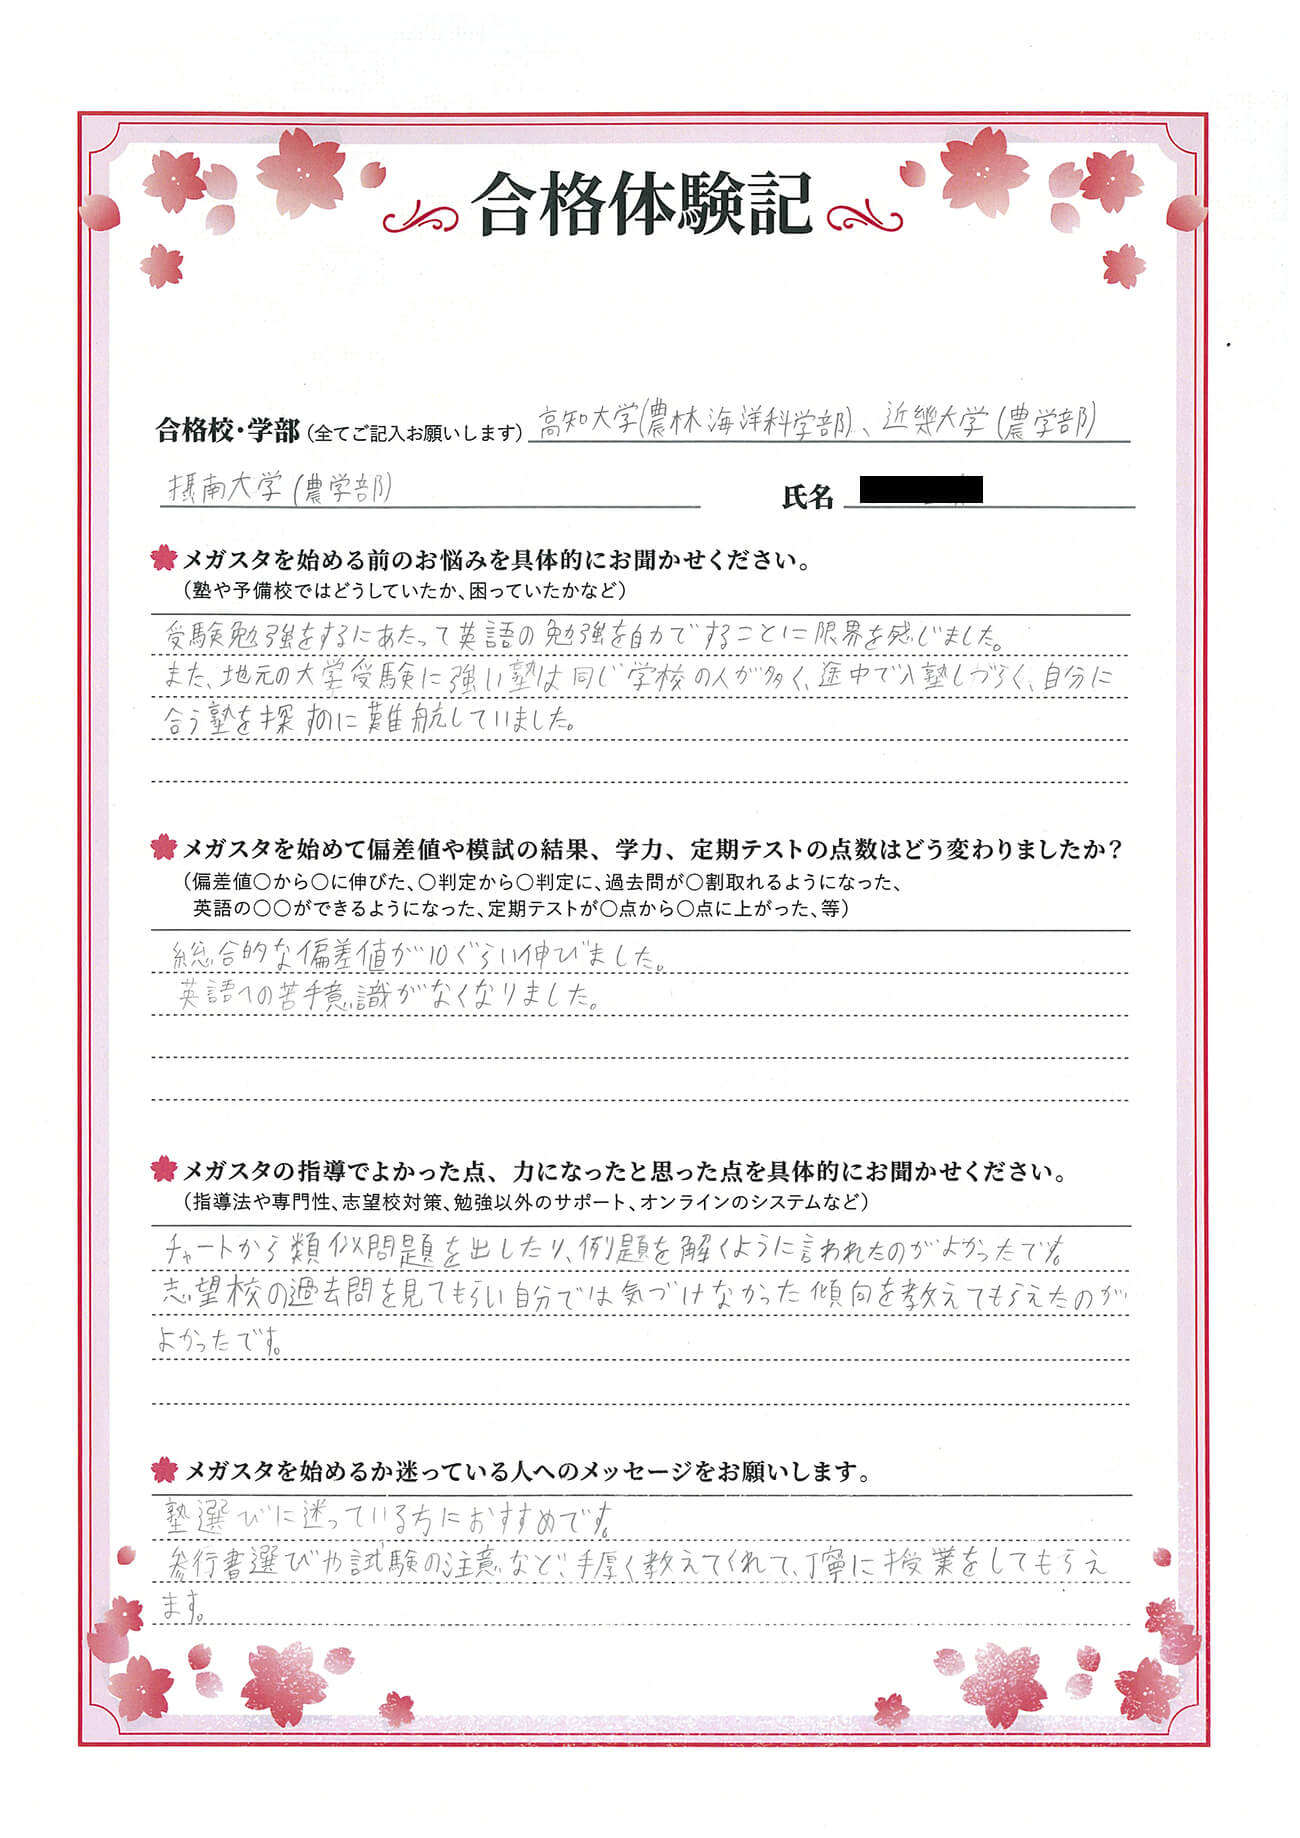 合格体験記
合格校・学部（全てご記入お願いします） 高知大学(農林海洋科学部)、近畿大学(農学部)
摂南大学(農学部) 氏名
メガスタを始める前のお悩みを具体的にお聞かせください。
（塾や予備校ではどうしていたか、困っていたかなど）
受験勉強をするにあたって英語の勉強を自力ですることに限界を感じました。
また、地元の大学受験に強い塾は同じ学校の人が多く、途中で入塾しづらく、自分に
合う塾を探すのに難航していました。
メガスタを始めて偏差値や模試の結果、学力、定期テストの点数はどう変わりましたか？
（偏差値〇から〇に伸びた、〇判定から〇判定に、過去問が〇割取れるようになった、
英語の〇〇ができるようになった、定期テストが〇点から〇点に上がった、等）
総合的な偏差値が10ぐらい伸びました。
英語への苦手意識がなくなりました。
メガスタの指導でよかった点、力になったと思った点を具体的にお聞かせください。
（指導法や専門性、志望校対策、勉強以外のサポート、オンラインのシステムなど）
チャートから類似問題を出したり、例題を解くように言われたのがよかったです。
志望校の過去問を見てもらい自分では気づけなかった傾向を教えてもらえたのが
よかったです。
メガスタを始めるか迷っている人へのメッセージをお願いします。
塾選びに迷っている方におすすめです。
参行書選びや試験の注意など、手厚く教えてくれて、丁寧に授業をしてもらえ
ます。